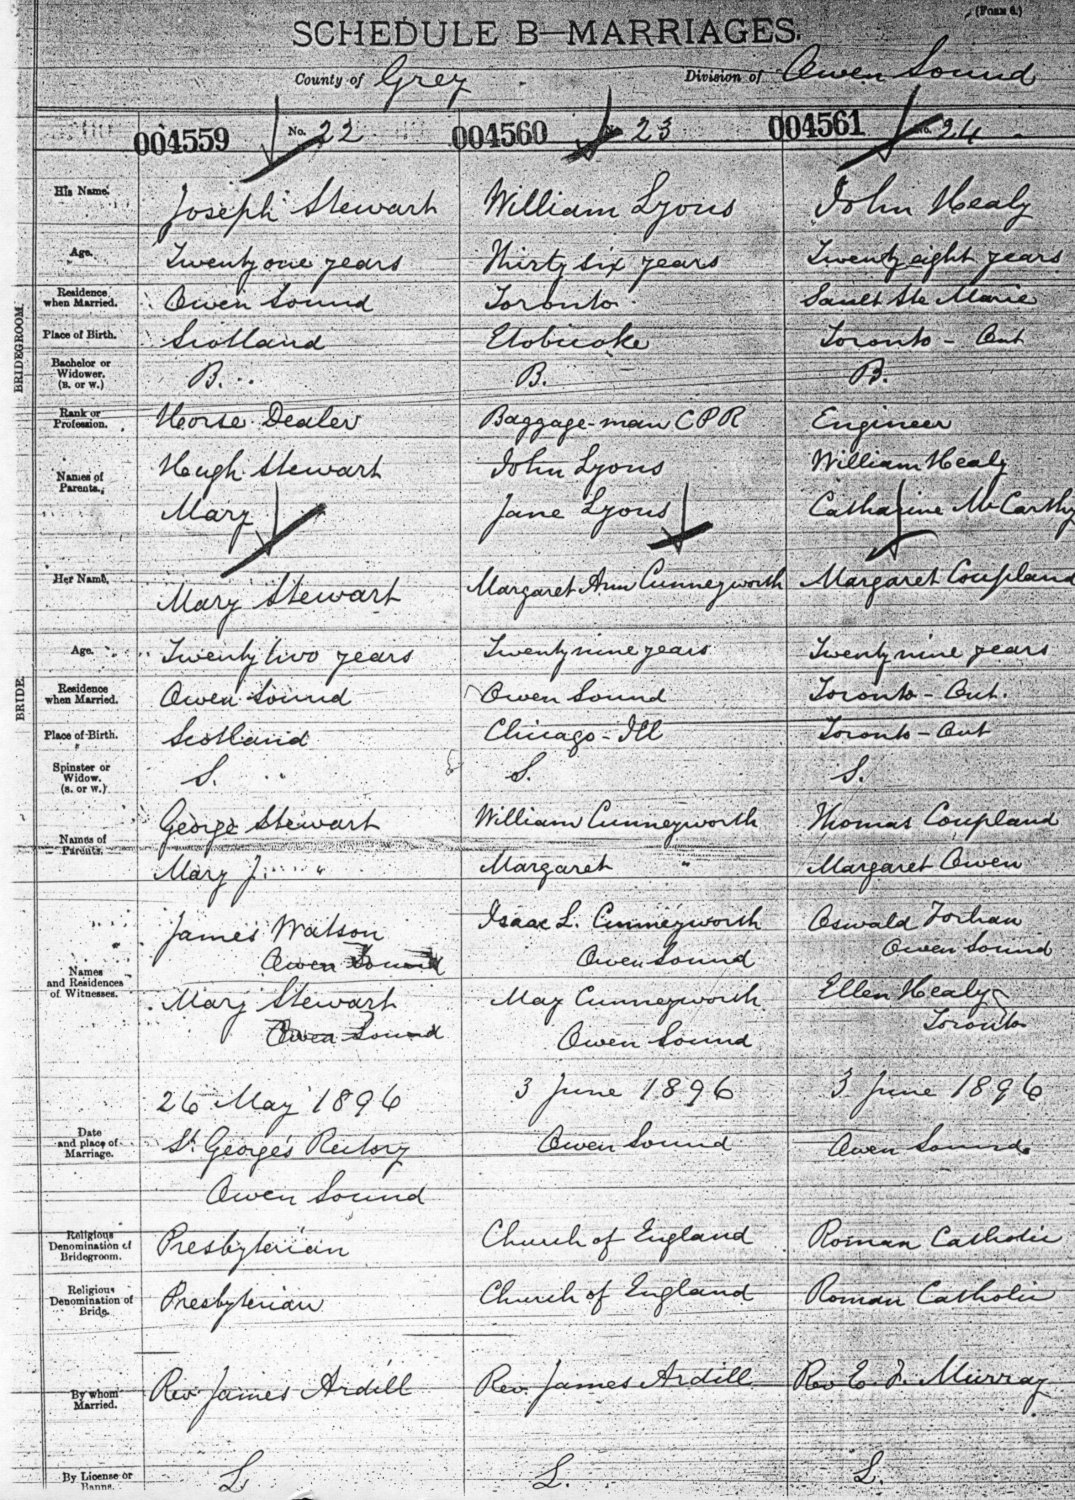 (Form 6.)
SCHEDULE B—MARRIAGES.
County of Grey Division of Owen Sound
004559 No. 22 004560 23 004561 No. 24
His Name. Joseph Stewart William Lyons John Healy
Age. Twenty one years Thirty six years Twenty eight years
Residence when Married. Owen Sound Toronto Sault Ste Marie
Place of Birth. Scotland Etobicoke Toronto - Ont
Bachelor or Widower. (B. or W.) B. B. B.
BRIDEGROOM.
Rank or Profession. Horse Dealer Baggage-man CPR Engineer
Names of Parents. Hugh Stewart John Lyons William Healy
Mary Jane Lyons Catharine McCarthy
Her Name. Mary Stewart Margaret Ann Cunneyworth Margaret Coupland
Age. Twenty two years Twenty nine years Twenty nine years
BRIDE.
Residence when Married. Owen Sound Owen Sound Toronto - Ont.
Place of Birth. Scotland Chicago - Ill Toronto - Ont
Spinster or Widow. (S. or W.) S. S. S.
Names of Parents. George Stewart William Cunneyworth Thomas Coupland
Mary J. " Margaret " Margaret Owen
Names and Residences of Witnesses. James Watson Isaac L. Cunneyworth Oswald
Owen Sound Owen Sound Owen Sound
Mary Stewart May Cunneyworth Ellen Healy
Owen Sound Owen Sound Toronto
Date and place of Marriage. 26 May 1896 3 June 1896 3 June 1896
St. George's Rectory Owen Sound Owen Sound.
Owen Sound
Religious Denomination of Bridegroom. Presbyterian Church of England Roman Catholic
Religious Denomination of Bride. Presbyterian Church of England Roman Catholic
By whom Married. Rev. James Ardill Rev. James Ardill Rev E. J. Murray
By License or Banns. L L. L.